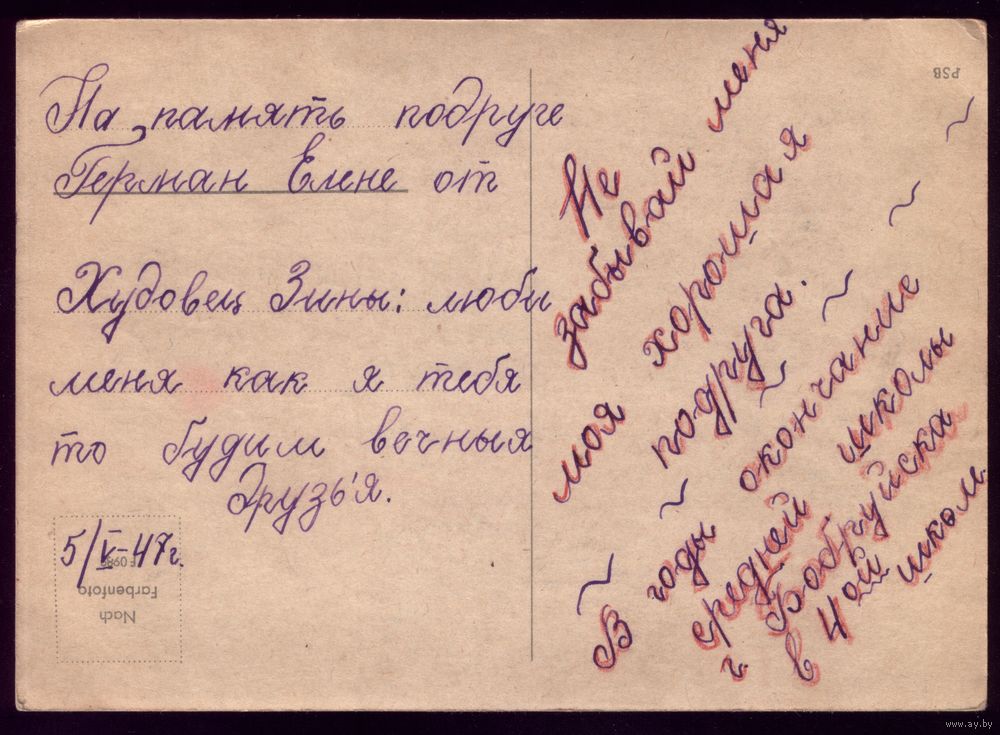 На память подруге
Герман Елене от
Худовец Зины: люби
меня как я тебя
то будим вечныя
друзь'я.
5/V-47г.
F098
Nach
Farbenfoto
PSB
Не забывай меня
моя хорошая
подруга.
В годы окончание
средней школы
г. Бобруйска
в 4ой школ.
www.ay.by